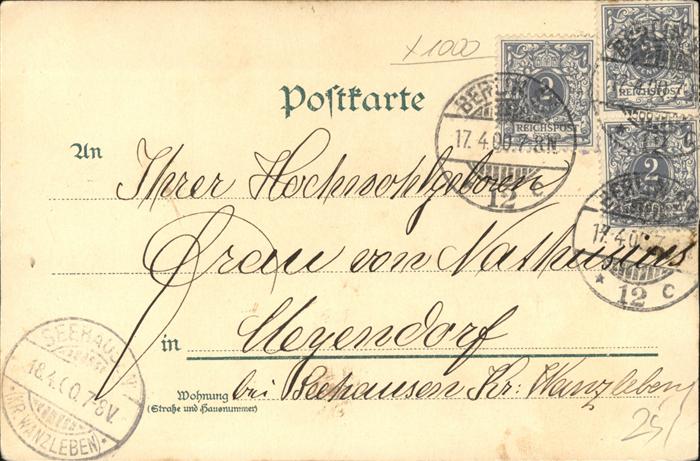 x 1000
2
REICHSPOST
2
REICHSPOST
2
Postkarte
BERLIN
17.4.00.7-8N.
12 c
BERLIN
17.4.00.7
* 12 c
An
Ihrer Hochwohlgeboren
Frau von Nathusius
in
Meyendorf
Wohnung
(Straße und Hausnummer)
bei Seehausen Kr: Wanzleben
SEEHAUSEN
18.4.00.7-8V.
(KR. WANZLEBEN)
25